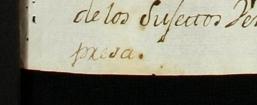 de los Sujetos
presa.